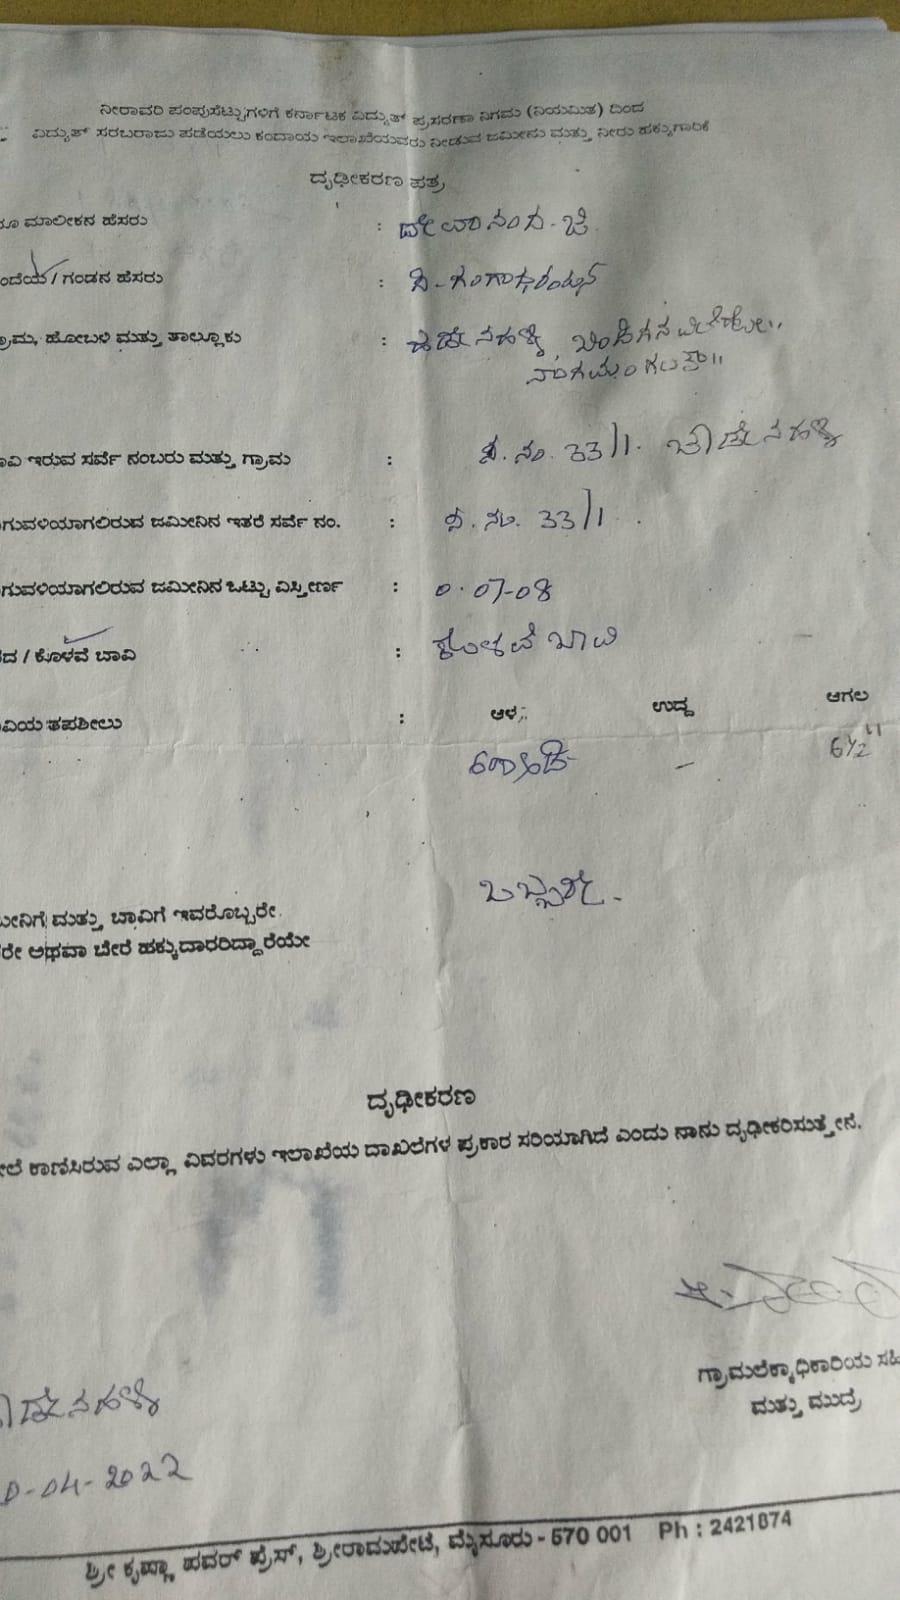 ನೀರಾವರಿ ಪಂಪುಸೆಟ್ಟುಗಳಿಗೆ ಕರ್ನಾಟಕ ವಿದ್ಯುತ್ ಪ್ರಸರಣಾ ನಿಗಮ (ನಿಯಮಿತ) ದಿಂದ
ವಿದ್ಯುತ್ ಸರಬರಾಜು ಪಡೆಯಲು ಕಂದಾಯ ಇಲಾಖೆಯವರು ನೀಡುವ ಜಮೀನು ಮತ್ತು ನೀರು ಹಕ್ಕುಗಾರಿಕೆ
ದೃಢೀಕರಣ ಪತ್ರ
ಮಾಲೀಕನ ಹೆಸರು : ದೇವಾನಂದ - ಜಿ
ಂದೆಯ / ಗಂಡನ ಹೆಸರು :
ರಾಮ, ಹೋಬಳಿ ಮತ್ತು ತಾಲ್ಲೂಕು :
ವಿ ಇರುವ ಸರ್ವೆ ನಂಬರು ಮತ್ತು ಗ್ರಾಮ : ಸ. ನಂ. 33/1. ಚೌಡೇನಹಳ್ಳಿ
ಗುವಳಿಯಾಗಲಿರುವ ಜಮೀನಿನ ಇತರೆ ಸರ್ವೆ ನಂ. : ಸ. ನಂ. 33/1.
ಗುವಳಿಯಾಗಲಿರುವ ಜಮೀನಿನ ಒಟ್ಟು ವಿಸ್ತೀರ್ಣ : 0-07-08
ದ / ಕೊಳವೆ ಬಾವಿ : ಕೊಳವೆ ಬಾವಿ
ವಿಯ ತಪಶೀಲು : ಆಳ ಉದ್ದ ಆಗಲ
600ಅಡಿ - 6½"
ಒಬ್ಬರೇ.
ಮೀನಿಗೆ ಮತ್ತು ಬಾವಿಗೆ ಇವರೊಬ್ಬರೇ
ರೇ ಅಥವಾ ಬೇರೆ ಹಕ್ಕುದಾರರಿದ್ದಾರೆಯೇ
ದೃಢೀಕರಣ
ಲೆ ಕಾಣಿಸಿರುವ ಎಲ್ಲಾ ವಿವರಗಳು ಇಲಾಖೆಯ ದಾಖಲೆಗಳ ಪ್ರಕಾರ ಸರಿಯಾಗಿದೆ ಎಂದು ನಾನು ದೃಢೀಕರಿಸುತ್ತೇನೆ.
ಗ್ರಾಮಲೆಕ್ಕಾಧಿಕಾರಿಯ ಸಹಿ
ಮತ್ತು ಮುದ್ರೆ
ಡೇನಹಳ್ಳಿ
0-04-2022
ಶ್ರೀ ಕೃಷ್ಣಾ ಪವರ್ ಪ್ರೆಸ್, ಶ್ರೀರಾಮಪೇಟೆ, ಮೈಸೂರು - 570 001 Ph : 2421874